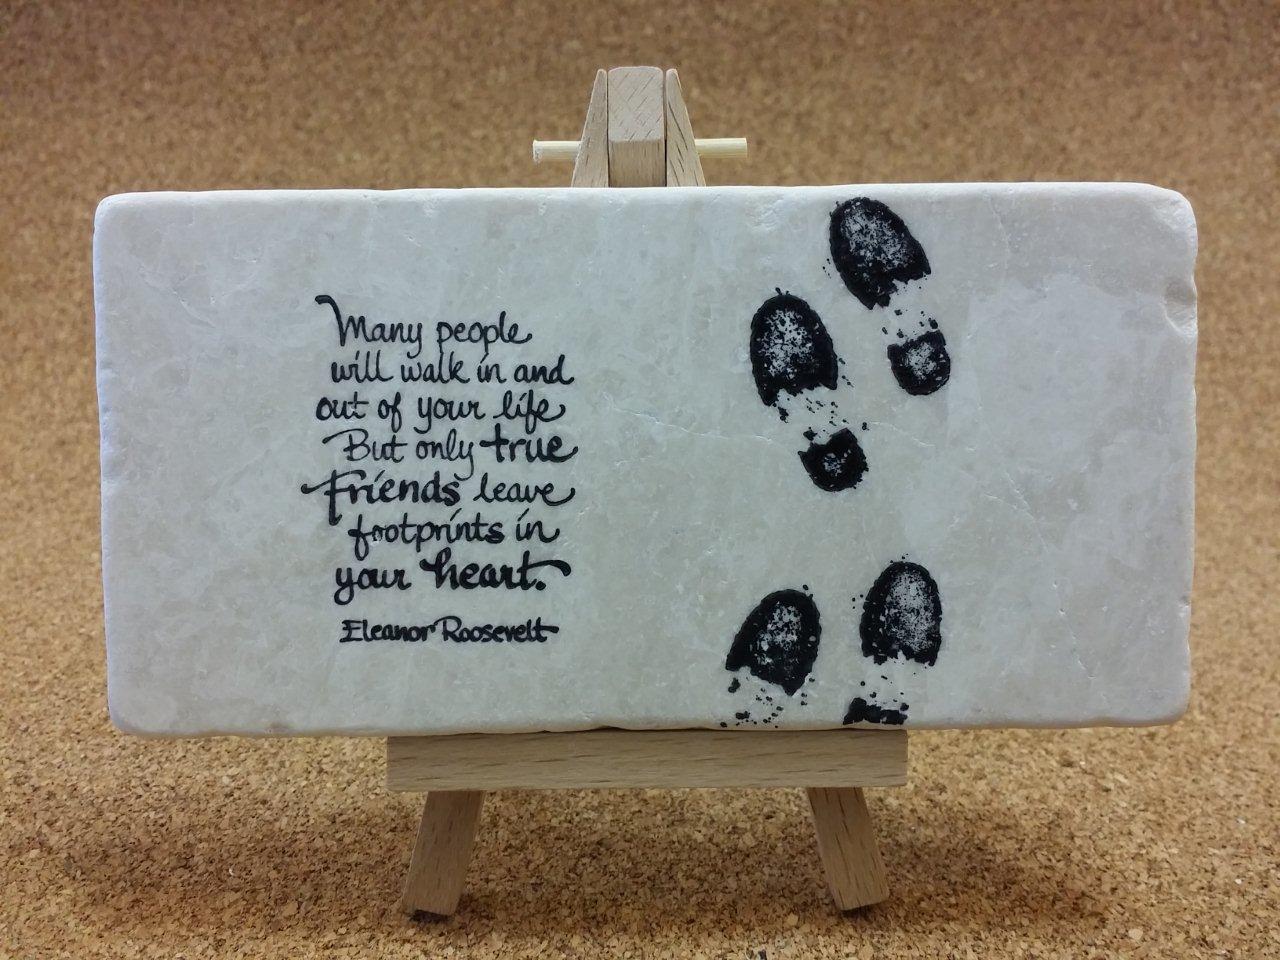 Many people
will walk in and
out of your life
But only true
Friends leave
footprints in
your heart.
Eleanor Roosevelt